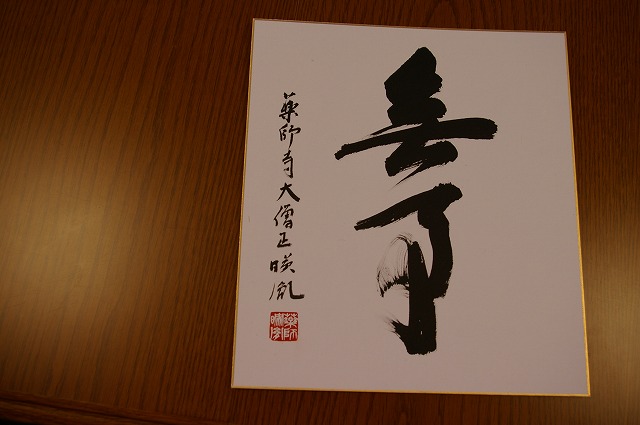 無事
薬師寺大僧正暎胤